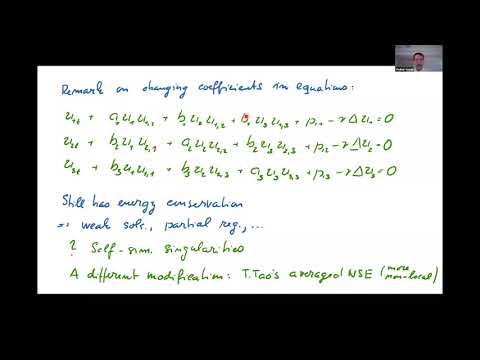 Remark on changing coefficients in equations:
u₁ₜ + a₁u₁u₁,₁ + b₁u₂u₁,₂ + b₁u₃u₁,₃ + p,₁ − νΔu₁ = 0
u₂ₜ + b₂u₁u₂,₁ + a₂u₂u₂,₂ + b₂u₃u₂,₃ + p,₂ − νΔu₂ = 0
u₃ₜ + b₃u₁u₃,₁ + b₃u₂u₃,₂ + a₃u₃u₃,₃ + p,₃ − νΔu₃ = 0
Still has energy conservation
⇒ weak sols., partial reg., ...
? Self-sim. singularities
A different modification: T. Tao's averaged NSE (more non-local)